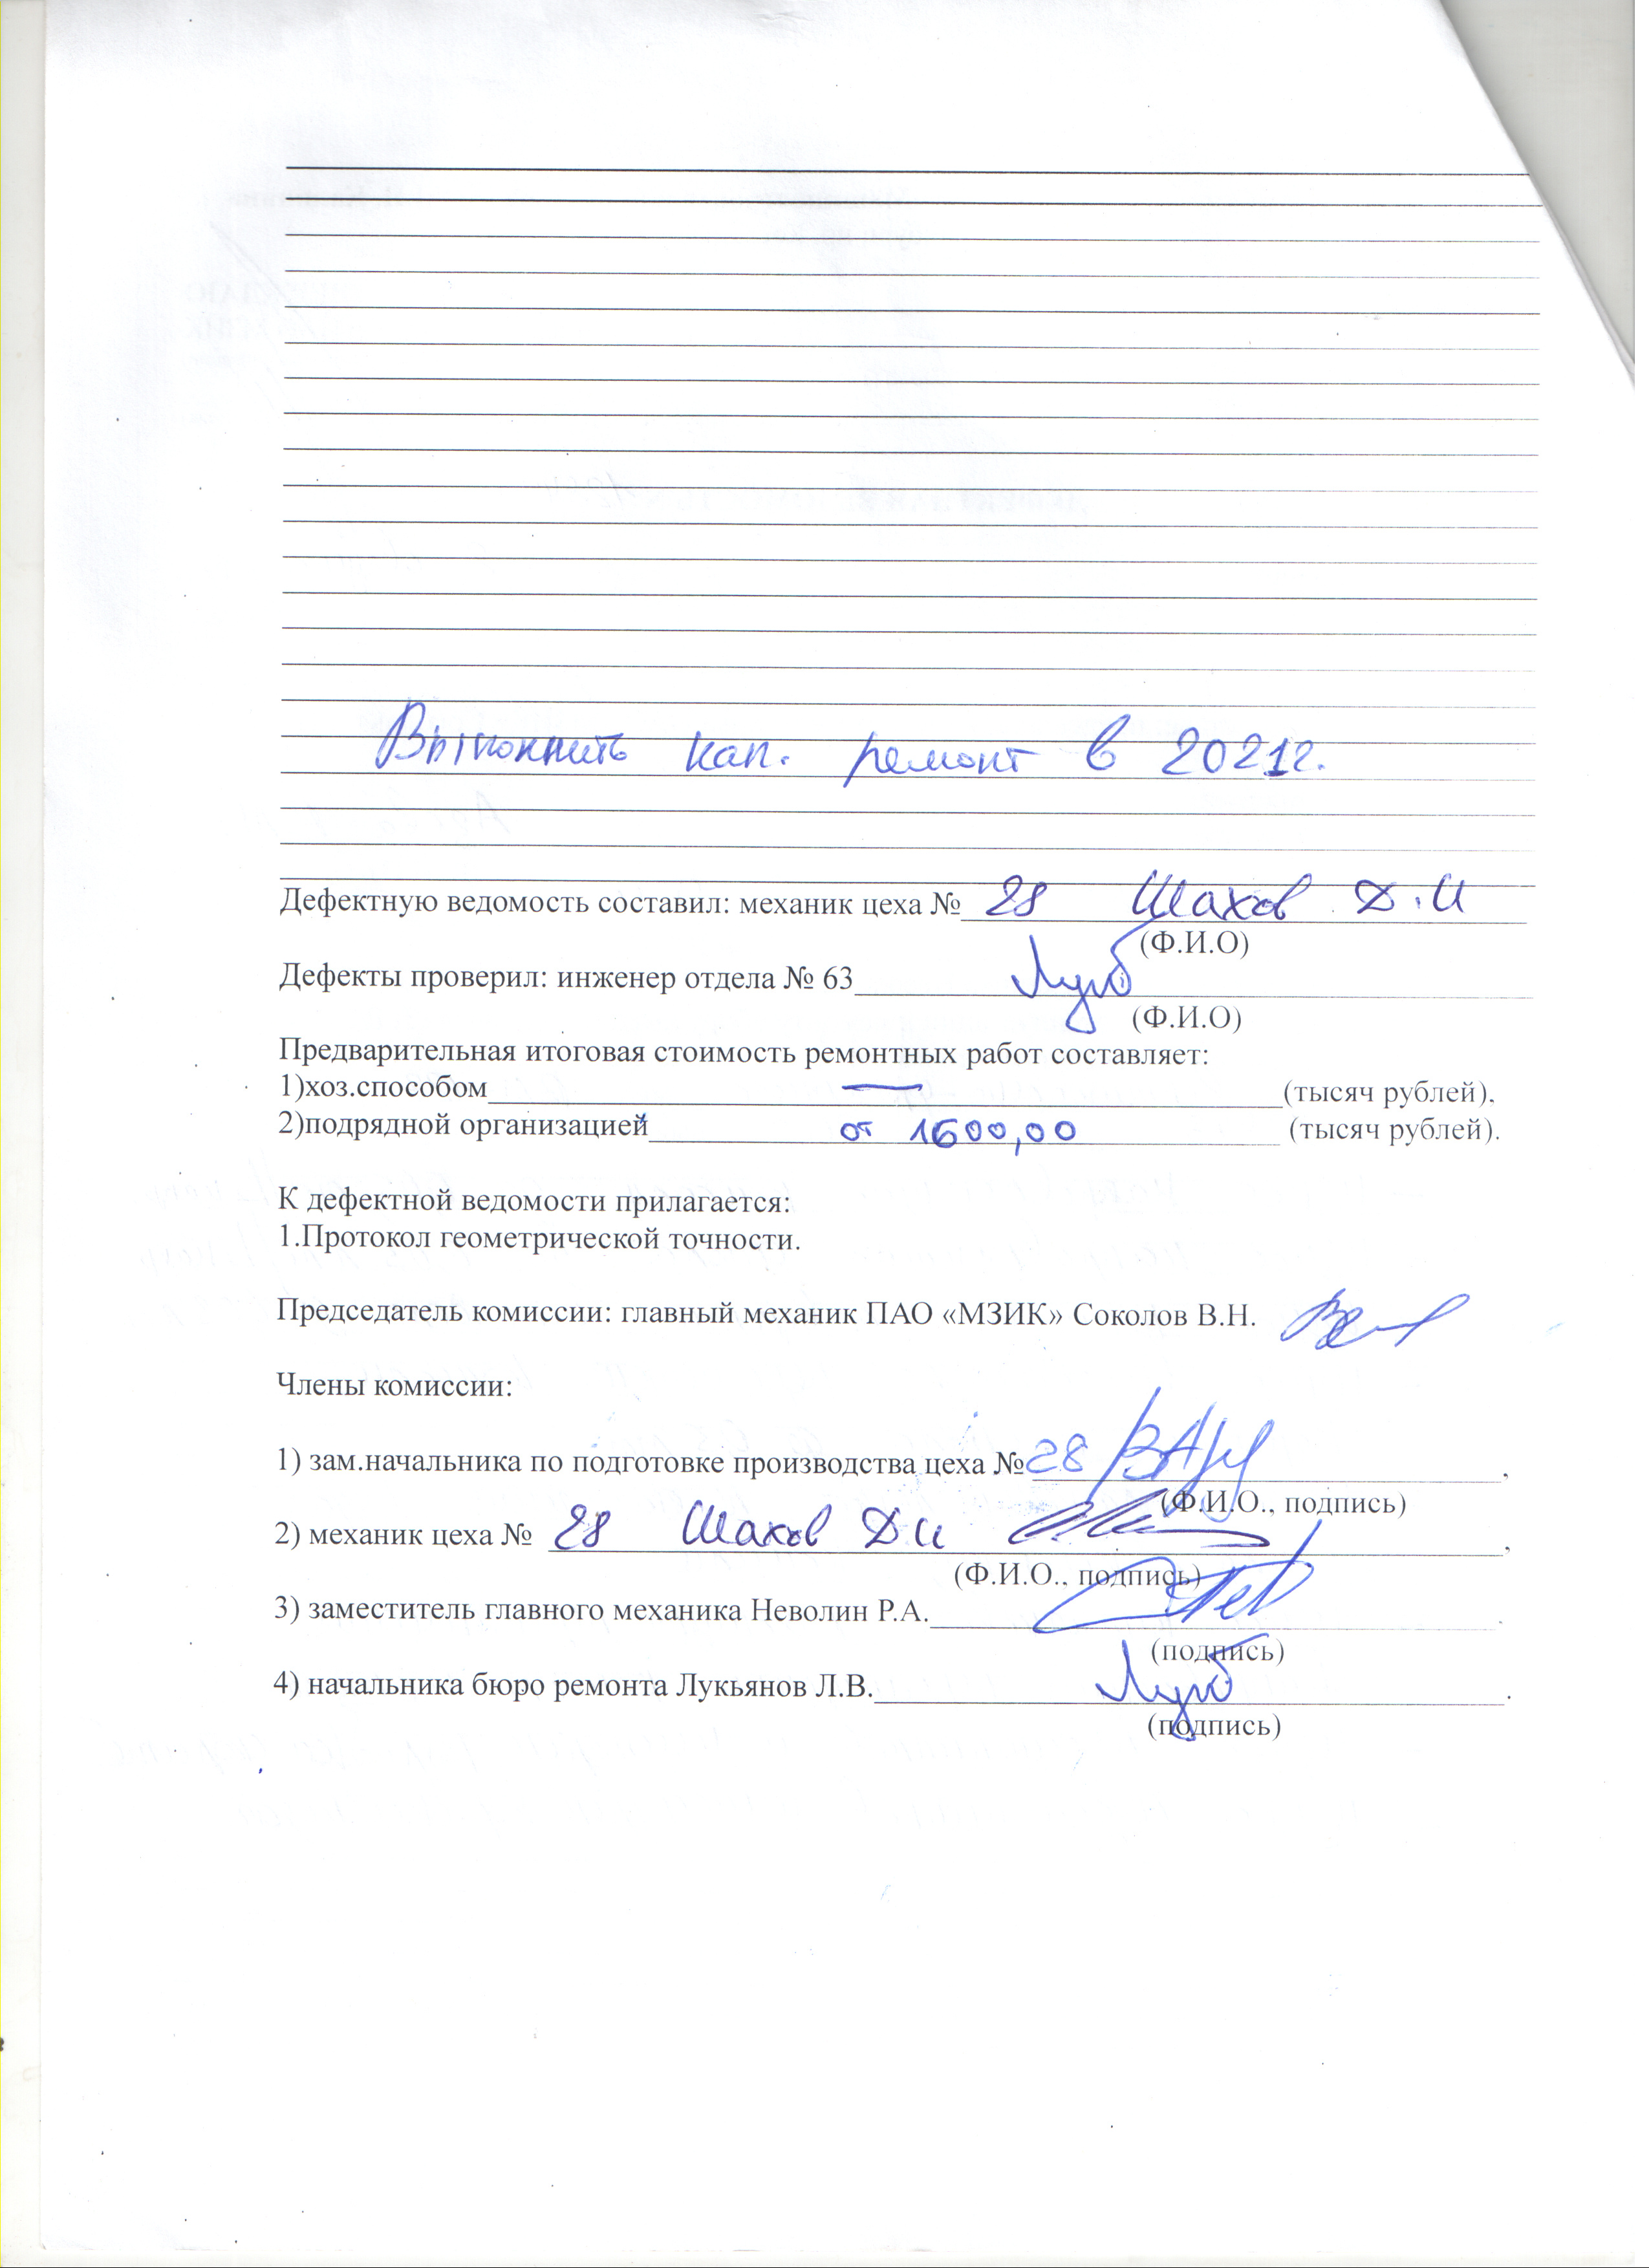 Выполнить кап. ремонт в 2021г.
Дефектную ведомость составил: механик цеха № 28 Шахов Д.И
(Ф.И.О)
Дефекты проверил: инженер отдела № 63
(Ф.И.О)
Предварительная итоговая стоимость ремонтных работ составляет:
1)хоз.способом — (тысяч рублей).
2)подрядной организацией от 1600,00 (тысяч рублей).
К дефектной ведомости прилагается:
1.Протокол геометрической точности.
Председатель комиссии: главный механик ПАО «МЗИК» Соколов В.Н.
Члены комиссии:
1) зам.начальника по подготовке производства цеха № 28 ,
(Ф.И.О., подпись)
2) механик цеха № 28 Шахов Д И ,
(Ф.И.О., подпись)
3) заместитель главного механика Неволин Р.А. .
(подпись)
4) начальника бюро ремонта Лукьянов Л.В. .
(подпись)